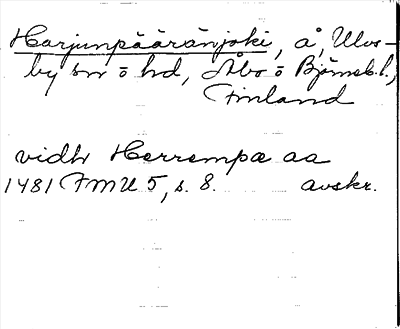 Harjunpääränjoki, å, Ulvs-
by sn o hd, Åbo o Björneb. l.,
Finland
vidh Herrempæ aa
1481 FMU 5, s. 8. avskr.